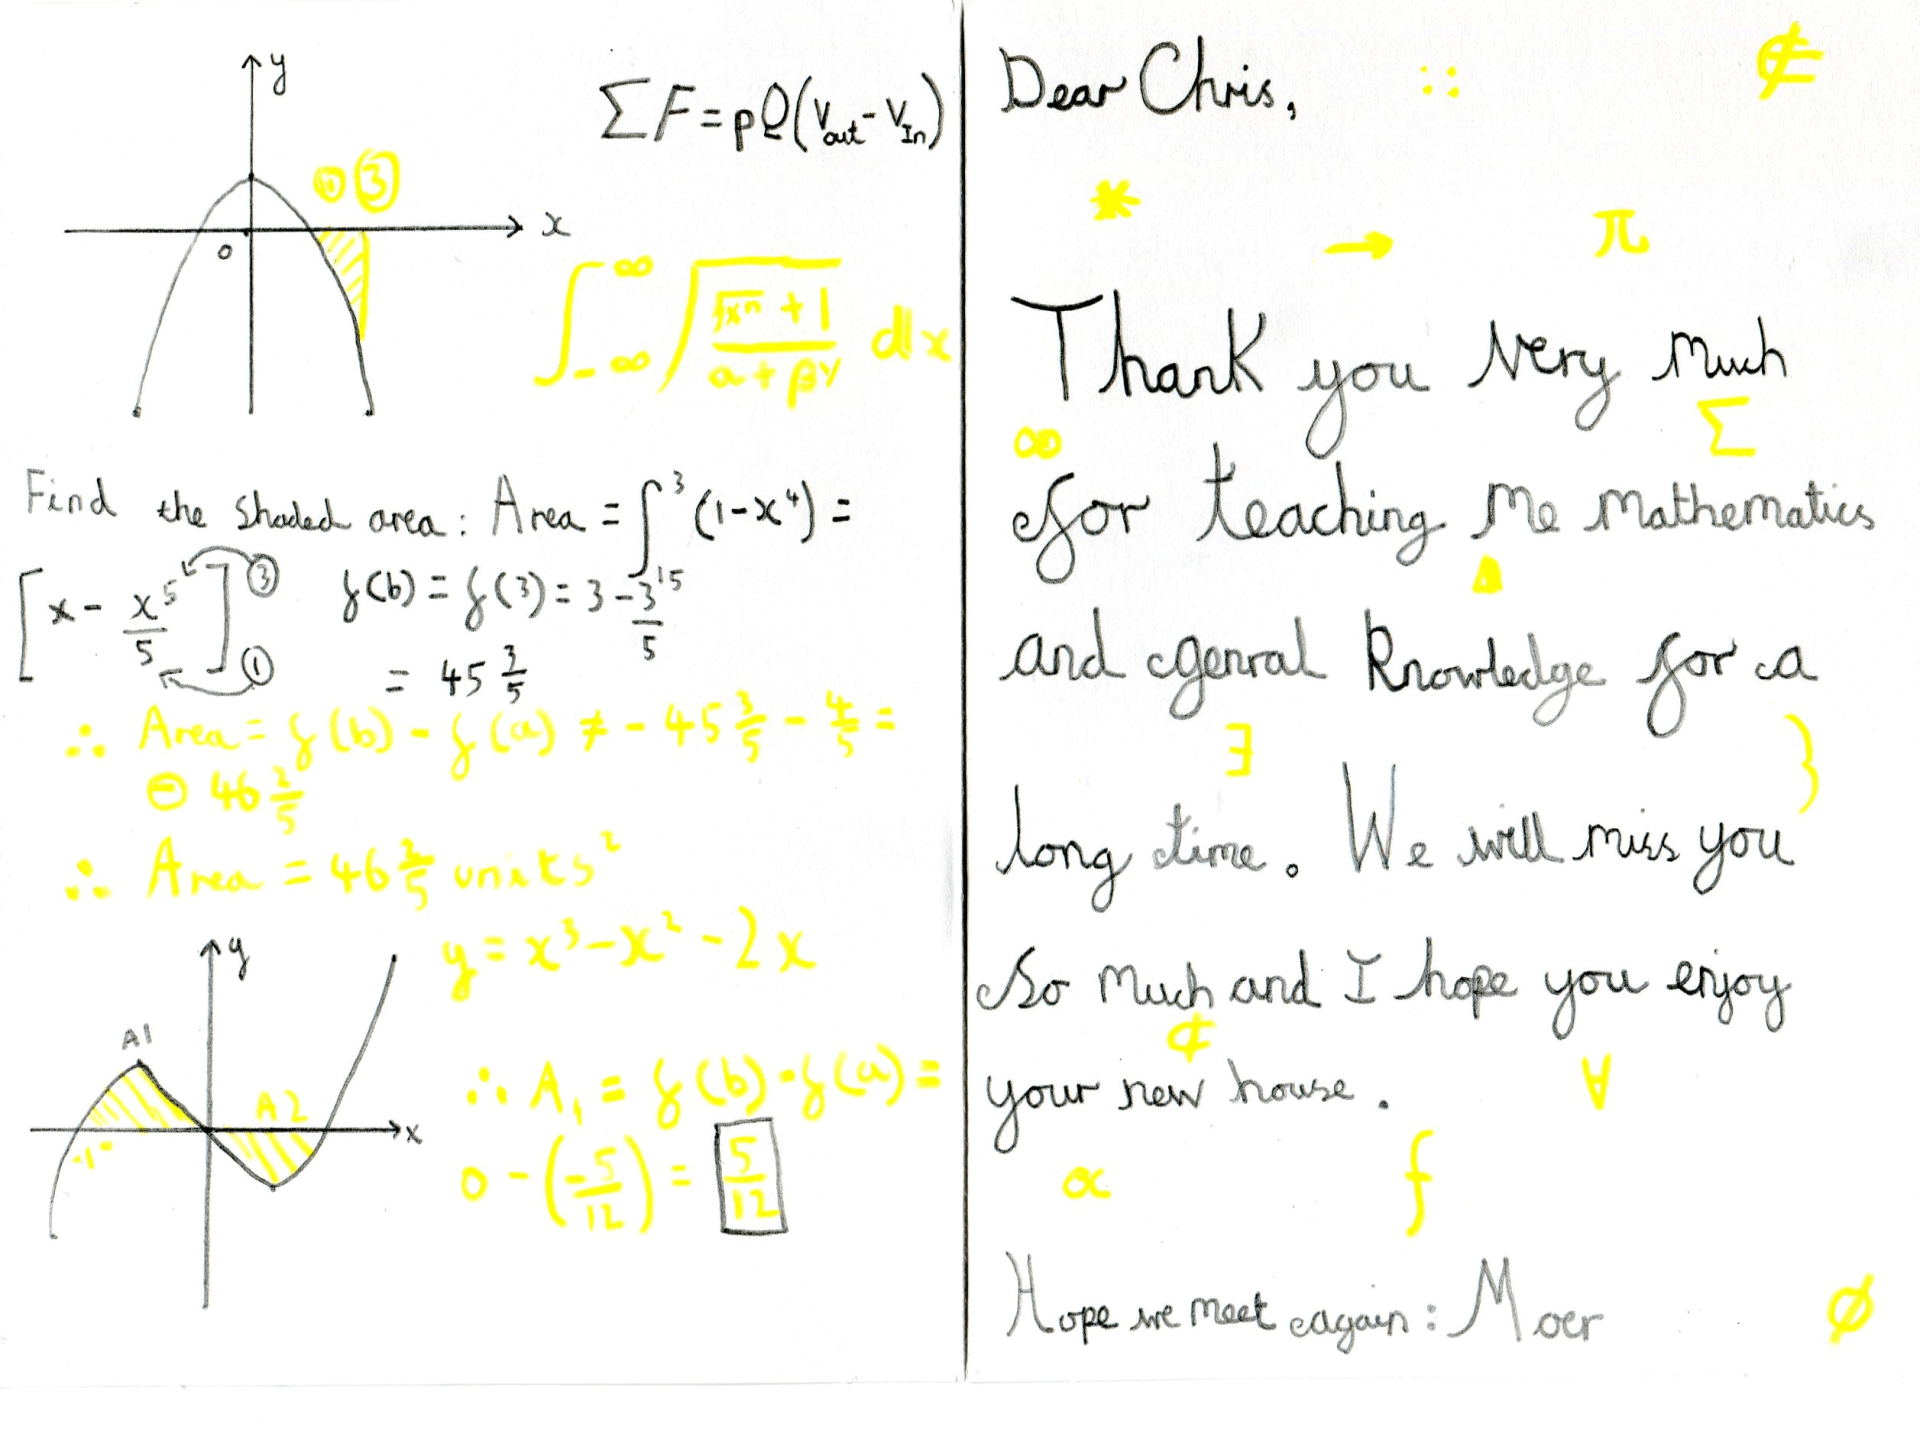 y
ΣF=ρQ(Vout-VIn)
③
x
0
∫-∞ ∞ √(√xⁿ + 1 / α + βγ) dx
Find the shaded area: Area = ∫³(1-x⁴) =
[x - x⁵/5] ③ ①
f(b) = f(3) = 3 - 3^15/5
= 45 3/5
∴ Area = f(b) - f(a) ≠ - 45 3/5 - 4/5 =
⊖ 46 2/5
∴ Area = 46 2/5 units²
y
y = x³-x²-2x
A1
A2
x
∴ A₁ = f(b) - f(a) =
0 - (-5/12) = 5/12
Dear Chris,
∷ ⊄
* → π
Thank you very much
∞ Σ
for teaching me mathematics
Δ
and genral knowledge for a
∃ }
long time. We will miss you
So much and I hope you enjoy
¢ ∀
your new house.
∝ f
Hope we meet again: Moer
∅